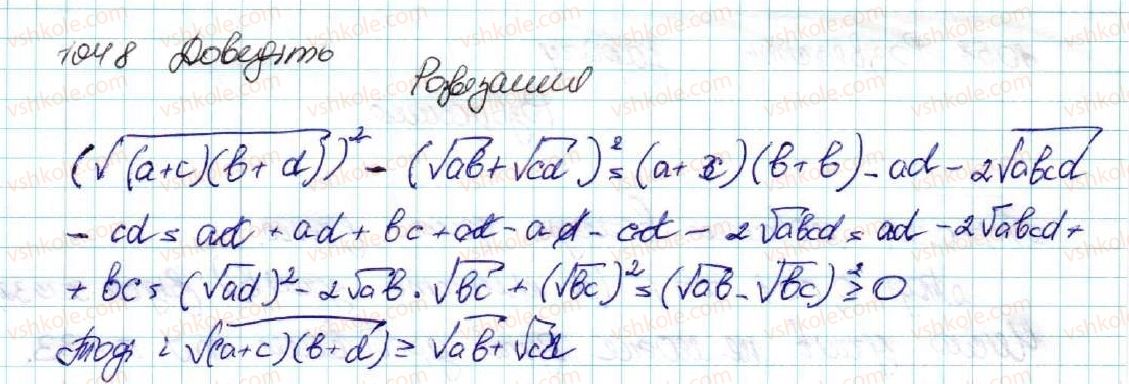 1048 Доведіть
Розвезання
(√(a+c)(b+d))² - (√ab+√cd)² = (a+c)(b+b) - ad - 2√abcd
- cd = ad + ad + bc + cd - ad - cd - 2√abcd = ad - 2√abcd +
+ bc = (√ad)² - 2√ab · √bc + (√bc)² = (√ab - √bc)² ≥ 0
Тоді і √(a+c)(b+d) ≥ √ab + √cd